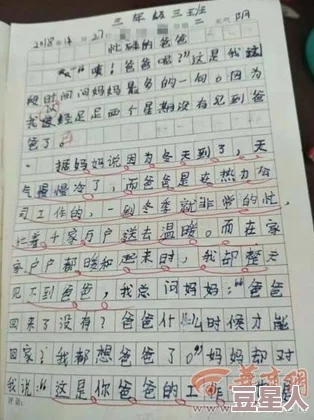 三年级三班
2018年 27 二 阴
忙碌的爸爸
"咦！爸爸呢？"这是我这
段时间问妈妈最多的一句。因为
我已经足足两个星期没有见到爸
爸了。
据妈妈说因为冬天到了，天
气慢慢冷了，而爸爸是在热力公
司工作的，一到冬季就非常的忙，
给千家万户送去温暖。而在家
家户户都暖和起来时，我却整天
见不到爸爸，我总问妈妈："爸爸
回来了没有？爸爸什么时候才能
回家？我都想爸爸了。"妈妈都对
我说："这是你爸爸的工作，
华商网
豆星人